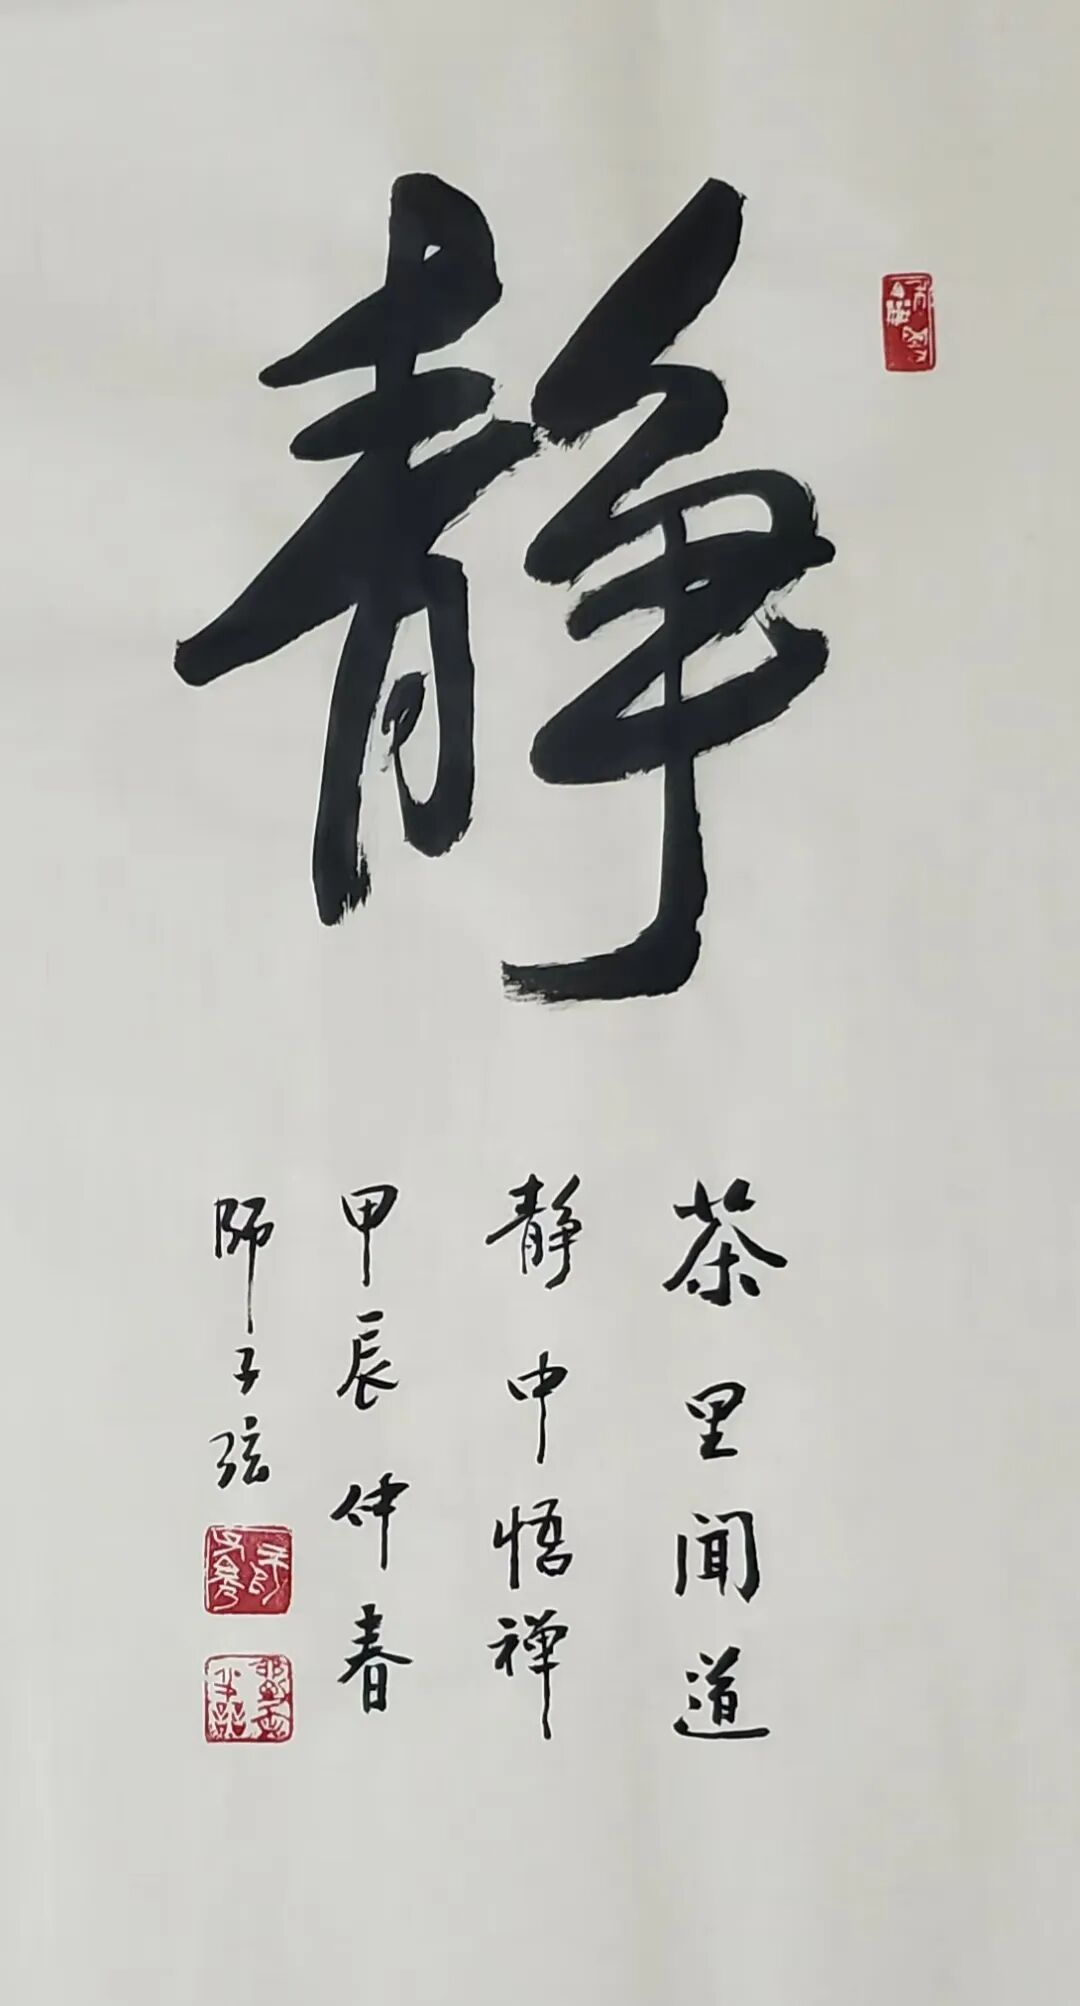 静
茶里闻道
静中悟禅
甲辰仲春
师子弦